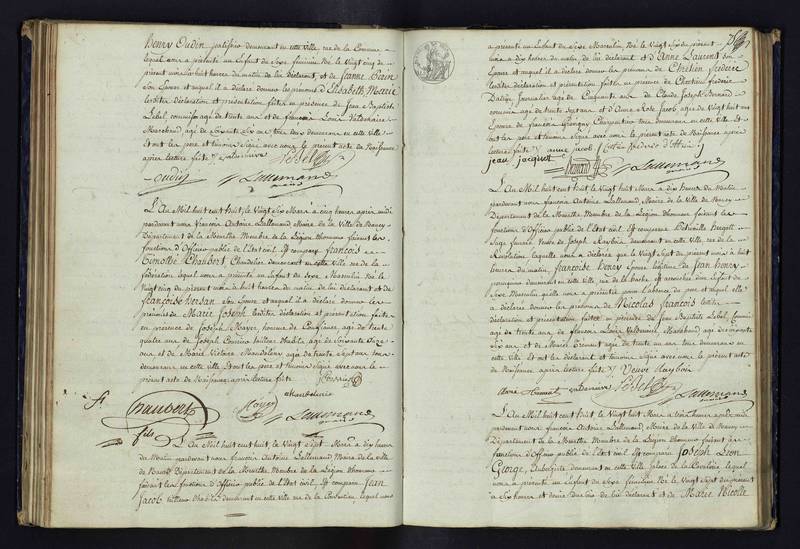 Henry Oudin patissier demeurant en cette Ville rue de la Commune
lequel nous a présenté un Enfant du Sexe féminin Né le Vingt cinq du
présent mois à huit heures du matin de lui déclarant, et de Jeanne
son Epouse et auquel il a déclaré donner les prénoms d'Elisabeth Marie
lesdites déclaration et présentation faites en présence de Jean Baptiste
Lebel, commis agé de trente ans et de françois Louis
Marchand agé de Soixante Six ans tous deux demeurans en cette Ville
Et ont les père et témoins Signé avec nous le présent acte de Naissance
après lecture faite
oudin Lallemand
L'An Mil huit cent huit, le Vingt Six Mars à cinq heures après midi
pardevant nous françois Antoine Lallemand Maire de la Ville de Nancy
Département de la Meurthe Membre de la Légion d'honneur faisant les
fonctions d'Officier public de l'Etat civil Est comparu françois
Timothé Chaubert Chandelier demeurant en cette Ville rue de la
fédération lequel nous a présenté un Enfant du Sexe Masculin Né le
Vingt cinq du présent mois à huit heures du matin de lui déclarant et de
françoise Hersan son Epouse et auquel il a déclaré donner les
prénoms de Marie Joseph lesdites déclaration et présentation faites
en présence de Joseph Mayer, homme de Confiance, agé de trente
quatre ans de Joseph tailleur d'habits, agé de Soixante
ans et de Marie Victoire agée de trente Sept ans tous
demeurans en cette Ville Et ont les père et témoins Signé avec nous le
présent acte de Naissance après lecture faite
Chaubert
fils
Mayer Lallemand
L'An Mil huit cent huit, le Vingt Sept Mars à dix heures
du Matin pardevant nous françois Antoine Lallemand Maire de la ville
de Nancy Département de la Meurthe Membre de la Légion d'honneur
faisant les fonctions d'Officier public de l'Etat civil, Est comparu Jean
Jacob tailleur d'habits demeurant en cette Ville rue de la Constitution, lequel nous
a présenté un Enfant du Sexe Masculin Né le Vingt Six du présent
mois à dix heures du matin de lui déclarant et d'Anne Laurent son
Epouse et auquel il a déclaré donner les prénoms de Chrétien frédéric
lesdites déclaration et présentation faites en présence de Chrétien frédéric
Journalier agé de Cinquante ans de Claude Joseph Bernard
agé de trente ans et d'Anne Rose Jacob agée de Vingt huit
Epouse de françois Charpentier tous demeurans en cette Ville Et
ont les père et témoins Signé avec nous le présent acte de Naissance après
lecture faite anne jacob
jean jacquot Lallemand
L'An Mil huit cent huit, le Vingt huit Mars à dix heures du Matin
pardevant nous françois Antoine Lallemand, Maire de la Ville de Nancy
Département de la Meurthe Membre de la Légion d'honneur faisant les
fonctions d'Officier public de l'Etat civil Est comparue
Sage femme Veuve de Joseph Raybois demeurant en cette Ville rue de la
Révolution laquelle nous a déclaré que le Vingt Sept du présent mois à huit
heures du matin, françoise Henry Epouse légitime de Jean Henry
demeurant en cette Ville rue de la est accouchée d'un Enfant du
Sexe Masculin qu'elle nous a présenté pour l'absence du père et auquel elle
a déclaré donner les prénoms de Nicolas françois lesdites
déclaration et présentation faites en présence de Jean Baptiste Lebel, Commis
agé de trente ans de françois Louis Marchand agé de Soixante
Six ans et de Marie agée de trente ans tous demeurans en
cette Ville Et ont les déclarant et témoins Signé avec nous le présent acte
de Naissance, après lecture faite Veuve Raybois
Lallemand
L'An Mil huit cent huit, le Vingt huit Mars à trois heures après midi
pardevant nous françois Antoine Lallemand, Maire de la Ville de Nancy
Département de la Meurthe Membre de la Légion d'honneur faisant les
fonctions d'Officier public de l'Etat civil Est comparu Joseph Léon
George, Aubergiste demeurant en cette Ville place de la lequel
nous a présenté un Enfant du Sexe féminin Né le Vingt Sept du présent
à Six heures et demie du soir de lui déclarant et de Marie Nicolle